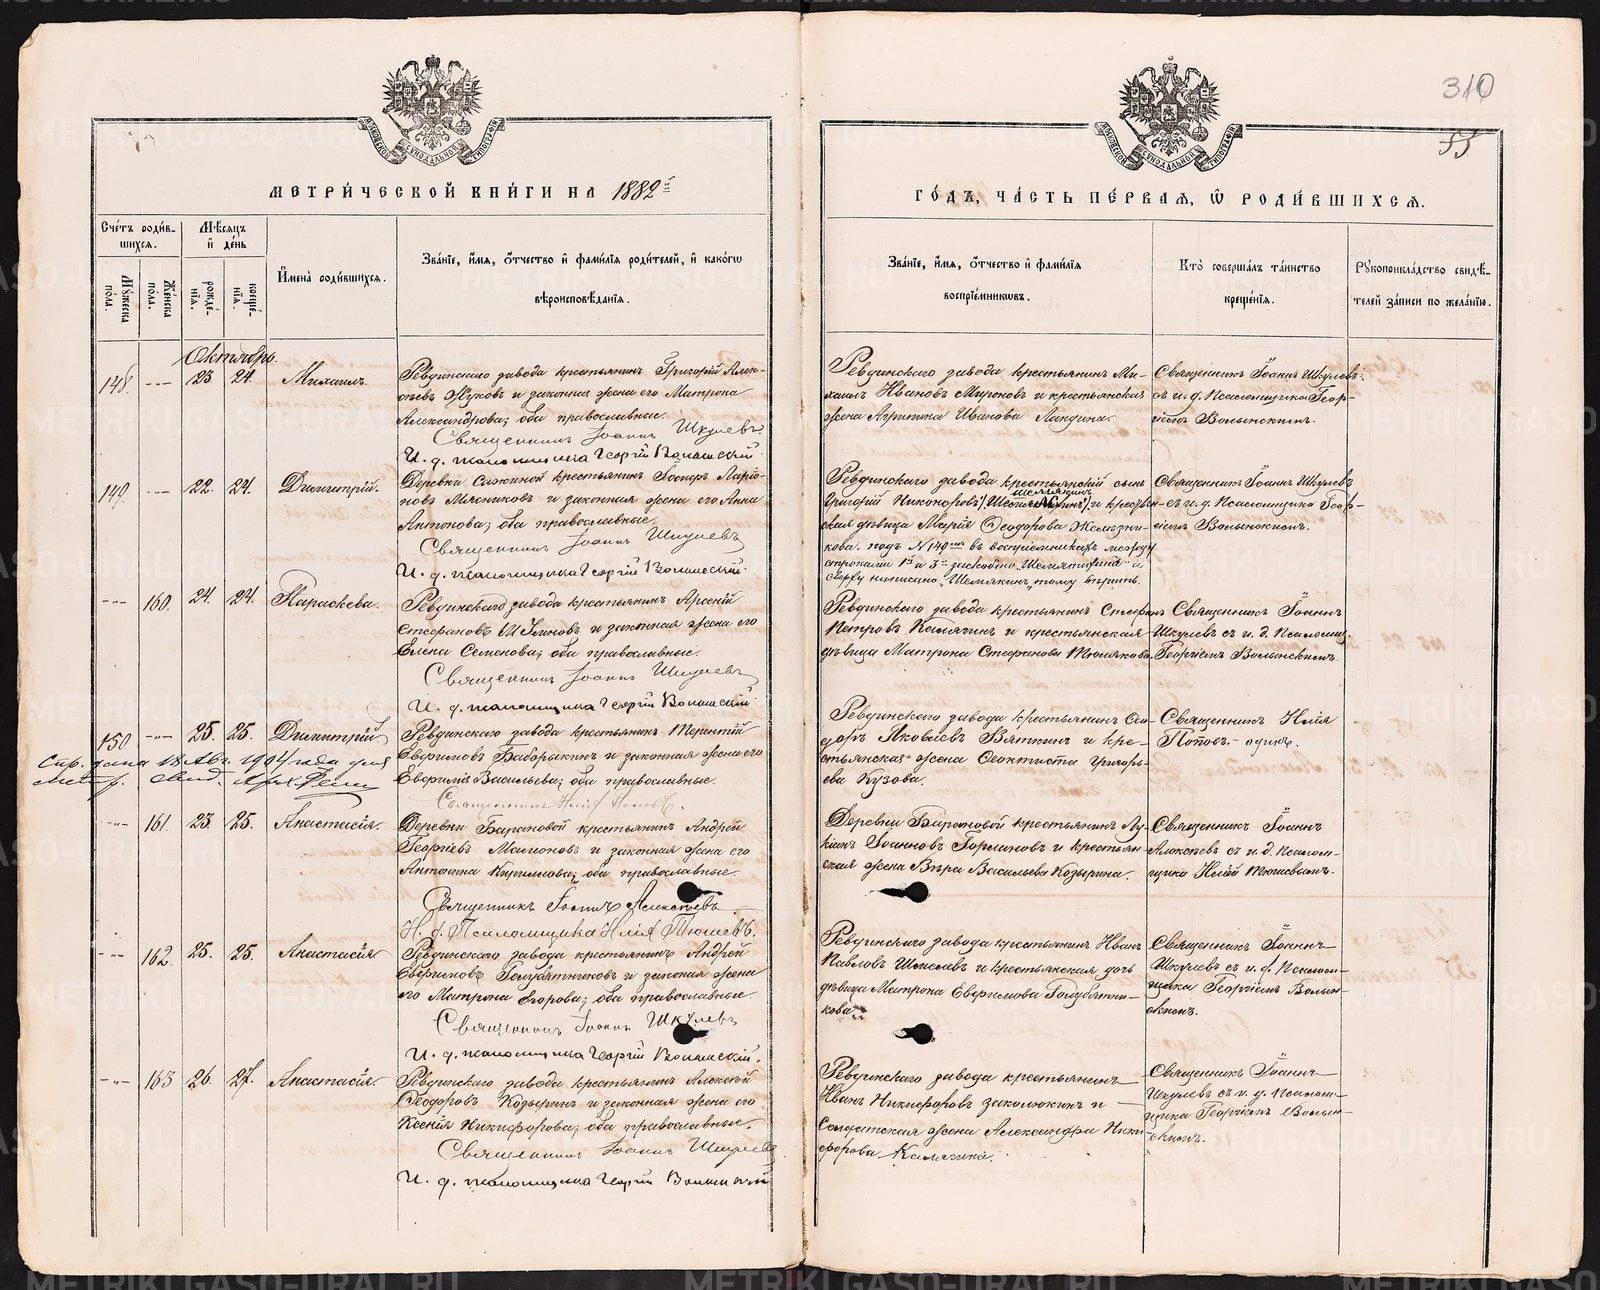 310
55
МЕТРИ́ЧЕСКОЙ КНИ́ГИ НА 1882й
ГО́ДЪ, ЧА́СТЬ ПЕ́РВАѦ, Ѡ РОДИ́ВШИХСѦ.
Сче́тъ роди́в-
шихсѧ.
Мꙋжеска по́ла.
Же́нска по́ла.
Мѣ́сѧцъ
и҆ де́нь
рожде́-
нїѧ.
креще́-
нїѧ.
И҆мена̀ роди́вшихсѧ.
Зва́нїе, и҆́мѧ, ѻ҆́тчество и҆ фами́лїѧ роди́телей, и҆ како́гѡ
вѣроисповѣ́данїѧ.
Зва́нїе, и҆́мѧ, ѻ҆́тчество и҆ фами́лїѧ
воспрїе́мникѡвъ.
Кто̀ соверша́лъ та́инство
креще́нїѧ.
Рꙋкоприкла́дство свидѣ́-
телей за́писи по жела́нїю.
Октябрь.
148. -"- 23. 24. Михаилъ.
Ревдинскаго завода крестьянинъ Григорій Алек-
сѣевъ Жуковъ и законная жена его Матрона
Александрова; оба православные.
Священникъ Іоаннъ Шкулевъ
И. д. псаломщика Георгій Волынскій.
Ревдинскаго завода крестьянинъ Ми-
хаилъ Ивановъ Мироновъ и крестьянская
жена Агрипина Иванова
Священникъ Іоаннъ Шкулевъ
съ и. д. Псаломщика Геор-
гіемъ Волынскимъ.
149. -"- 22. 24. Димитрій.
Деревни крестьянинъ Ларіо-
новъ Мясниковъ и законная жена его Анна
Антонова; оба православные.
Священникъ Іоаннъ Шкулевъ
И. д. псаломщика Георгій Волынскій.
Ревдинскаго завода крестьянскій сынъ
Шемякинъ
Григорій Никоноровъ и крестьян-
ская дѣвица Марія Ѳеодорова Желѣзни-
кова. подъ №149мъ въ воспріемникахъ между
строками 1й и 3й и
сверху написано „Шемякинъ" тому вѣрить.
Священникъ Іоаннъ Шкулевъ
съ и. д. Псаломщика Геор-
гіемъ Волынскимъ.
-"- 160. 24. 24. Параскева.
Ревдинскаго завода крестьянинъ Арсеній
Стефановъ и законная жена его
Елена Семенова; оба православные.
Священникъ Іоаннъ Шкулевъ
И. д. псаломщика Георгій Волынскій.
Ревдинскаго завода крестьянинъ Стефанъ
Петровъ Калягинъ и крестьянская
дѣвица Матрона Стефанова
Священникъ Іоаннъ
Шкулевъ съ и. д. Псаломщ.
Георгіемъ Волынскимъ.
150 -"- 25. 25. Димитрій
Спр. дана 18 Авг. 1904 года для
метр. свид.
Ревдинскаго завода крестьянинъ Терентій
Евфимовъ Баборыкинъ и законная жена его
Евфимія Васильева; оба православные.
Священникъ Илія Поповъ.
Ревдинскаго завода крестьянинъ Ѳео-
доръ Яковлевъ Вяткинъ и кре-
стьянская жена Ѳеоктиста Григорь-
ева Кузова.
Священникъ Илія
Поповъ - одинъ.
-"- 161. 23. 25. Анастасія.
Деревни Барановой крестьянинъ Андрей
Георгіевъ Мамоновъ и законная жена его
Антонина Кириллова; оба православные.
Священникъ Іоаннъ Алексѣевъ
И. д. Псаломщика Илія Тюшевъ.
Деревни Барановой крестьянинъ Лу-
кіанъ Іоанновъ Горлановъ и крестьян-
ская жена Вѣра Васильева Козырина.
Священникъ Іоаннъ
Алексѣевъ съ и. д. Псалом-
щика Иліей Тюшевымъ.
-"- 162. 25. 25. Анастасія
Ревдинскаго завода крестьянинъ Андрей
Евфимовъ Голубятниковъ и законая жена
его Матрона Егорова; оба православные.
Священникъ Іоаннъ Шкулевъ
И. д. псаломщика Георгій Волынскій.
Ревдинскаго завода крестьянинъ Иванъ
Павловъ Шмелевъ и крестьянская дочь
дѣвица Матрона Евфимова Голубятни-
кова.
Священникъ Іоаннъ
Шкулевъ съ и. д. Псалом-
щика Георгіемъ Волын-
скимъ.
-"- 163 26. 27. Анастасія.
Ревдинскаго завода крестьянинъ Алексѣй
Ѳеодоровъ Козыринъ и законная жена его
Ксенія Никифорова; оба православные.
Священникъ Іоаннъ Шкулевъ
И. д. псаломщика Георгій Волынскій
Ревдинскаго завода крестьянинъ
Иванъ Никифоровъ Заколюкинъ и
Солдатская жена Александра Ники-
форова Калягина.
Священникъ Іоаннъ
Шкулевъ съ и. д. Псалом-
щика Георгіемъ Волын-
скимъ.
METRIKI.GASO-URAL.RU